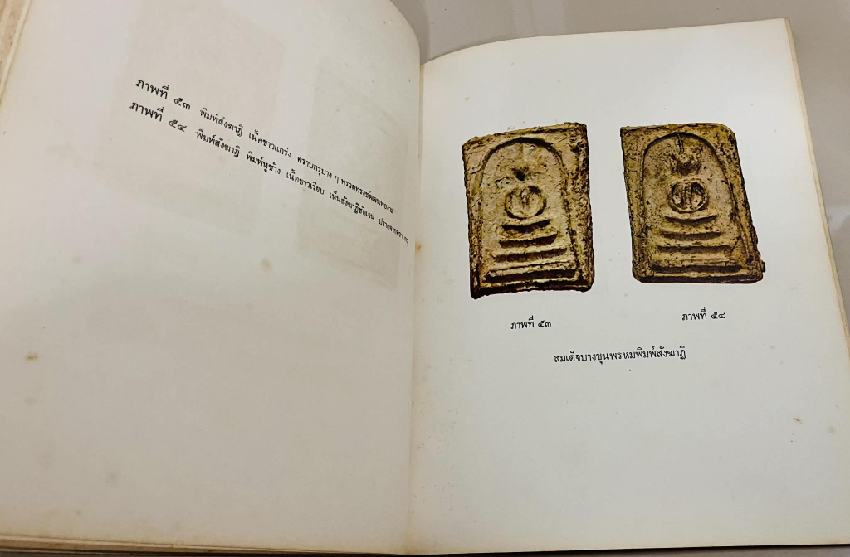 ภาพที่ ๕๓ พิมพ์สังฆาฏิ เนื้อขาวแกร่ง คราบกรุบาง ๆ
ภาพที่ ๕๔ พิมพ์สังฆาฏิ พิมพ์หูช้าง
ภาพที่ ๕๓
ภาพที่ ๕๔
สมเด็จบางขุนพรหมพิมพ์สังฆาฏิ